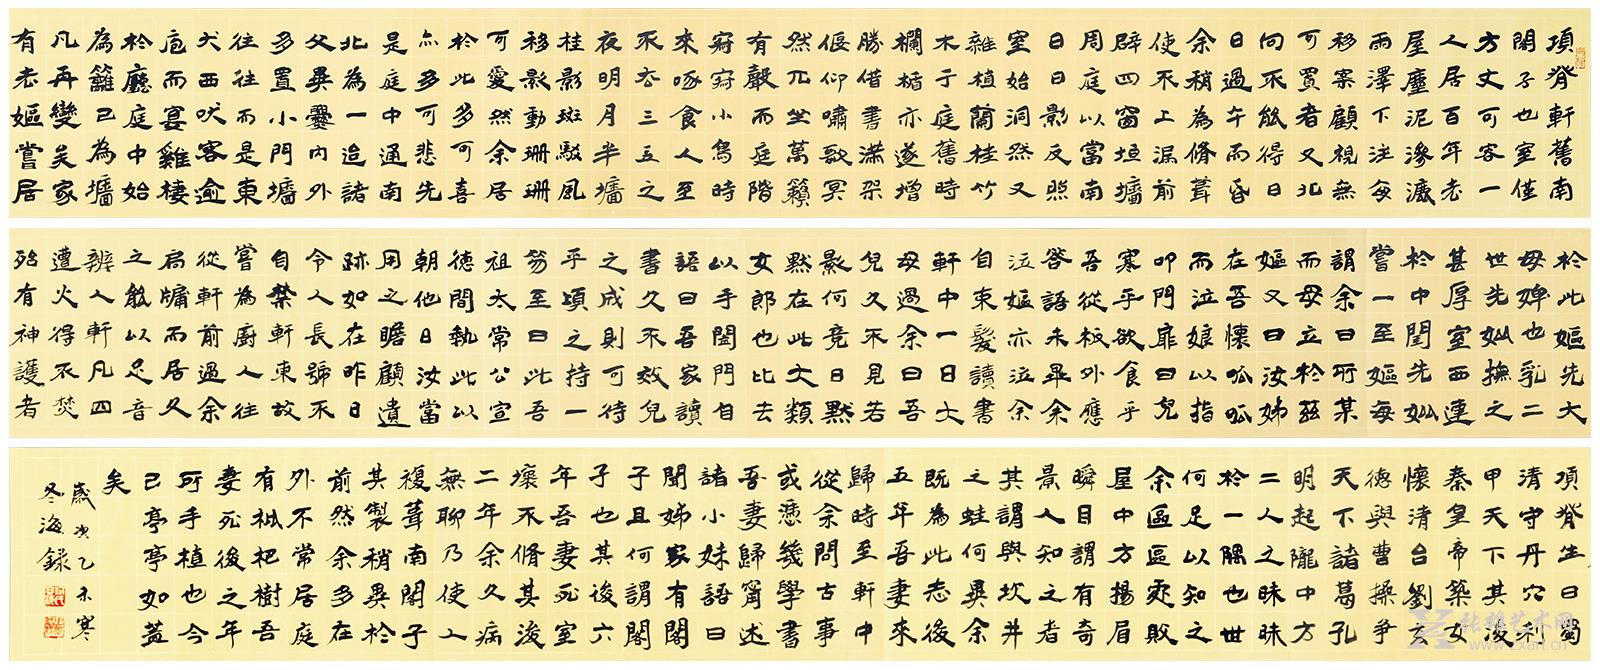 項脊軒舊南
閣子也室僅
方丈可容一
人居百年老
屋塵泥滲漉
雨澤下注每
移案顧視無
可置者又北
向不能得日
日過午而昏
余稍為脩葺
使不上漏前
辟四窗垣墻
周庭以當南
日日影反照
室始洞然又
雜植蘭桂竹
木于庭舊時
欄楯亦遂增
勝借書滿架
偃仰嘯歌冥
然兀坐萬籟
有聲而庭階
寂寂小鳥時
來啄食人至
不去三五之
夜明月半墻
桂影斑駁風
移影動珊珊
可愛然余居
於此多可喜
亦多可悲先
是庭中通南
北為一迨諸
父異爨內外
多置小門墻
往往而是東
犬西吠客逾
庖而宴雞棲
於廳庭中始
為籬已為墻
凡再變矣家
有老嫗嘗居
於此嫗先大
母婢也乳二
世先妣撫之
甚厚室西連
於中閨先妣
嘗一至嫗每
謂余曰所某
而母立於茲
嫗又曰汝姊
在吾懷呱呱
而泣娘以指
叩門扉曰兒
寒乎欲食乎
吾從板外應
答語未畢余
泣嫗亦泣余
自束髮讀書
軒中一日大
母過余曰吾
兒久不見若
影何竟日默
默在此大類
女郎也比去
以手闔門自
語曰吾家讀
書久不效兒
之成則可待
乎頃之持一
笏至曰此吾
祖太常公宣
德間執此以
朝他日汝當
用之瞻顧遺
跡如在昨日
令人長號不
自禁軒東故
嘗為廚人往
從軒前過余
扃牖而居久
之能以足音
辨人軒凡四
遭火得不焚
殆有神護者
項脊生曰蜀
清守丹穴利
甲天下其後
秦皇帝築女
懷清台劉玄
德與曹操爭
天下諸葛孔
明起隴中方
二人之昧昧
於一隅也世
何足以知之
余區區處敗
屋中方揚眉
瞬目謂有奇
景人知之者
其謂與坎井
之蛙何異余
既為此志後
五年吾妻來
歸時至軒中
從余問古事
或憑幾學書
吾妻歸寧述
諸小妹語曰
聞姊家有閣
子且何謂閣
子也其後六
年吾妻死室
壞不脩其後
二年余久病
無聊乃使人
複葺南閣子
其製稍異於
前然余多在
外不常居庭
有枇杷樹吾
妻死後之年
所手植也今
已亭亭如蓋
矣
歲次乙未寒
冬海錄